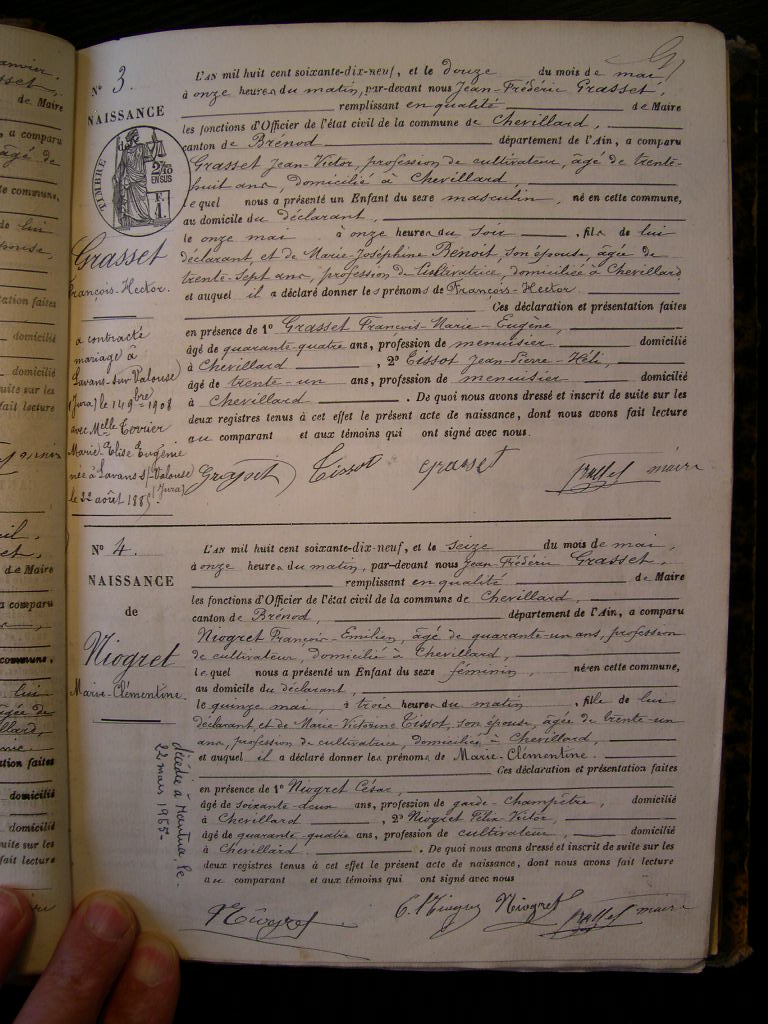 N° 3.
NAISSANCE
de
TIMBRE
2/10
EN SUS
F.
1.
Grasset
François-Hector.
a contracté
mariage à
Lavans-sur-Valouse
(Jura) le 14 9bre 1908
avec Melle
Marie Elise Eugénie
née à Lavans s/-Valouse
(Jura)
le 22 août 1885
L'AN mil huit cent soixante-dix-neuf, et le douze du mois de mai,
à onze heures du matin, par-devant nous Jean-Frédéric Grasset,
remplissant en qualité de Maire
les fonctions d'Officier de l'état civil de la commune de Chevillard,
canton de Brénod département de l'Ain, a comparu
Grasset Jean-Victor, profession de cultivateur, âgé de trente-
huit ans, domicilié à Chevillard,
lequel nous a présenté un Enfant du sexe masculin, né en cette commune,
au domicile du déclarant,
le onze mai à onze heures du soir, fils de lui
déclarant, et de Marie-Joséphine Benoit, son épouse, âgée de
trente-sept ans, profession de cultivatrice, domiciliée à Chevillard
et auquel il a déclaré donner les prénoms de François-Hector.
Ces déclaration et présentation faites
en présence de 1° Grasset François-Marie-Eugène,
âgé de quarante-quatre ans, profession de menuisier domicilié
à Chevillard, 2° Tissot Jean-Pierre-Héli,
âgé de trente-un ans, profession de menuisier domicilié
à Chevillard. De quoi nous avons dressé et inscrit de suite sur les
deux registres tenus à cet effet le présent acte de naissance, dont nous avons fait lecture
au comparant et aux témoins qui ont signé avec nous.
Grasset Tissot Grasset Grasset maire
N° 4.
NAISSANCE
de
Niogret
Marie-Clémentine.
décédée à Nantua, le
22 mars 1965-
L'AN mil huit cent soixante-dix-neuf, et le seize du mois de mai,
à onze heures du matin, par-devant nous Jean-Frédéric Grasset,
remplissant en qualité de Maire
les fonctions d'Officier de l'état civil de la commune de Chevillard,
canton de Brénod, département de l'Ain, a comparu
Niogret François-Emilien, âgé de quarante-un ans, profession
de cultivateur, domicilié à Chevillard,
lequel nous a présenté un Enfant du sexe féminin, née en cette commune,
au domicile du déclarant,
le quinze mai, à trois heures du matin, fille de lui
déclarant, et de Marie Victorine Tissot, son épouse, âgée de trente-un
ans, profession de cultivatrice, domiciliée à Chevillard,
et auquel il a déclaré donner les prénoms de Marie-Clémentine.
Ces déclaration et présentation faites
en présence de 1° Niogret César,
âgé de soixante-deux ans, profession de garde-champêtre, domicilié
à Chevillard, 2° Niogret Félix-Victor,
âgé de quarante-quatre ans, profession de cultivateur, domicilié
à Chevillard. De quoi nous avons dressé et inscrit de suite sur les
deux registres tenus à cet effet le présent acte de naissance, dont nous avons fait lecture
au comparant et aux témoins qui ont signé avec nous
Niogret C. Niogret Niogret Grasset maire